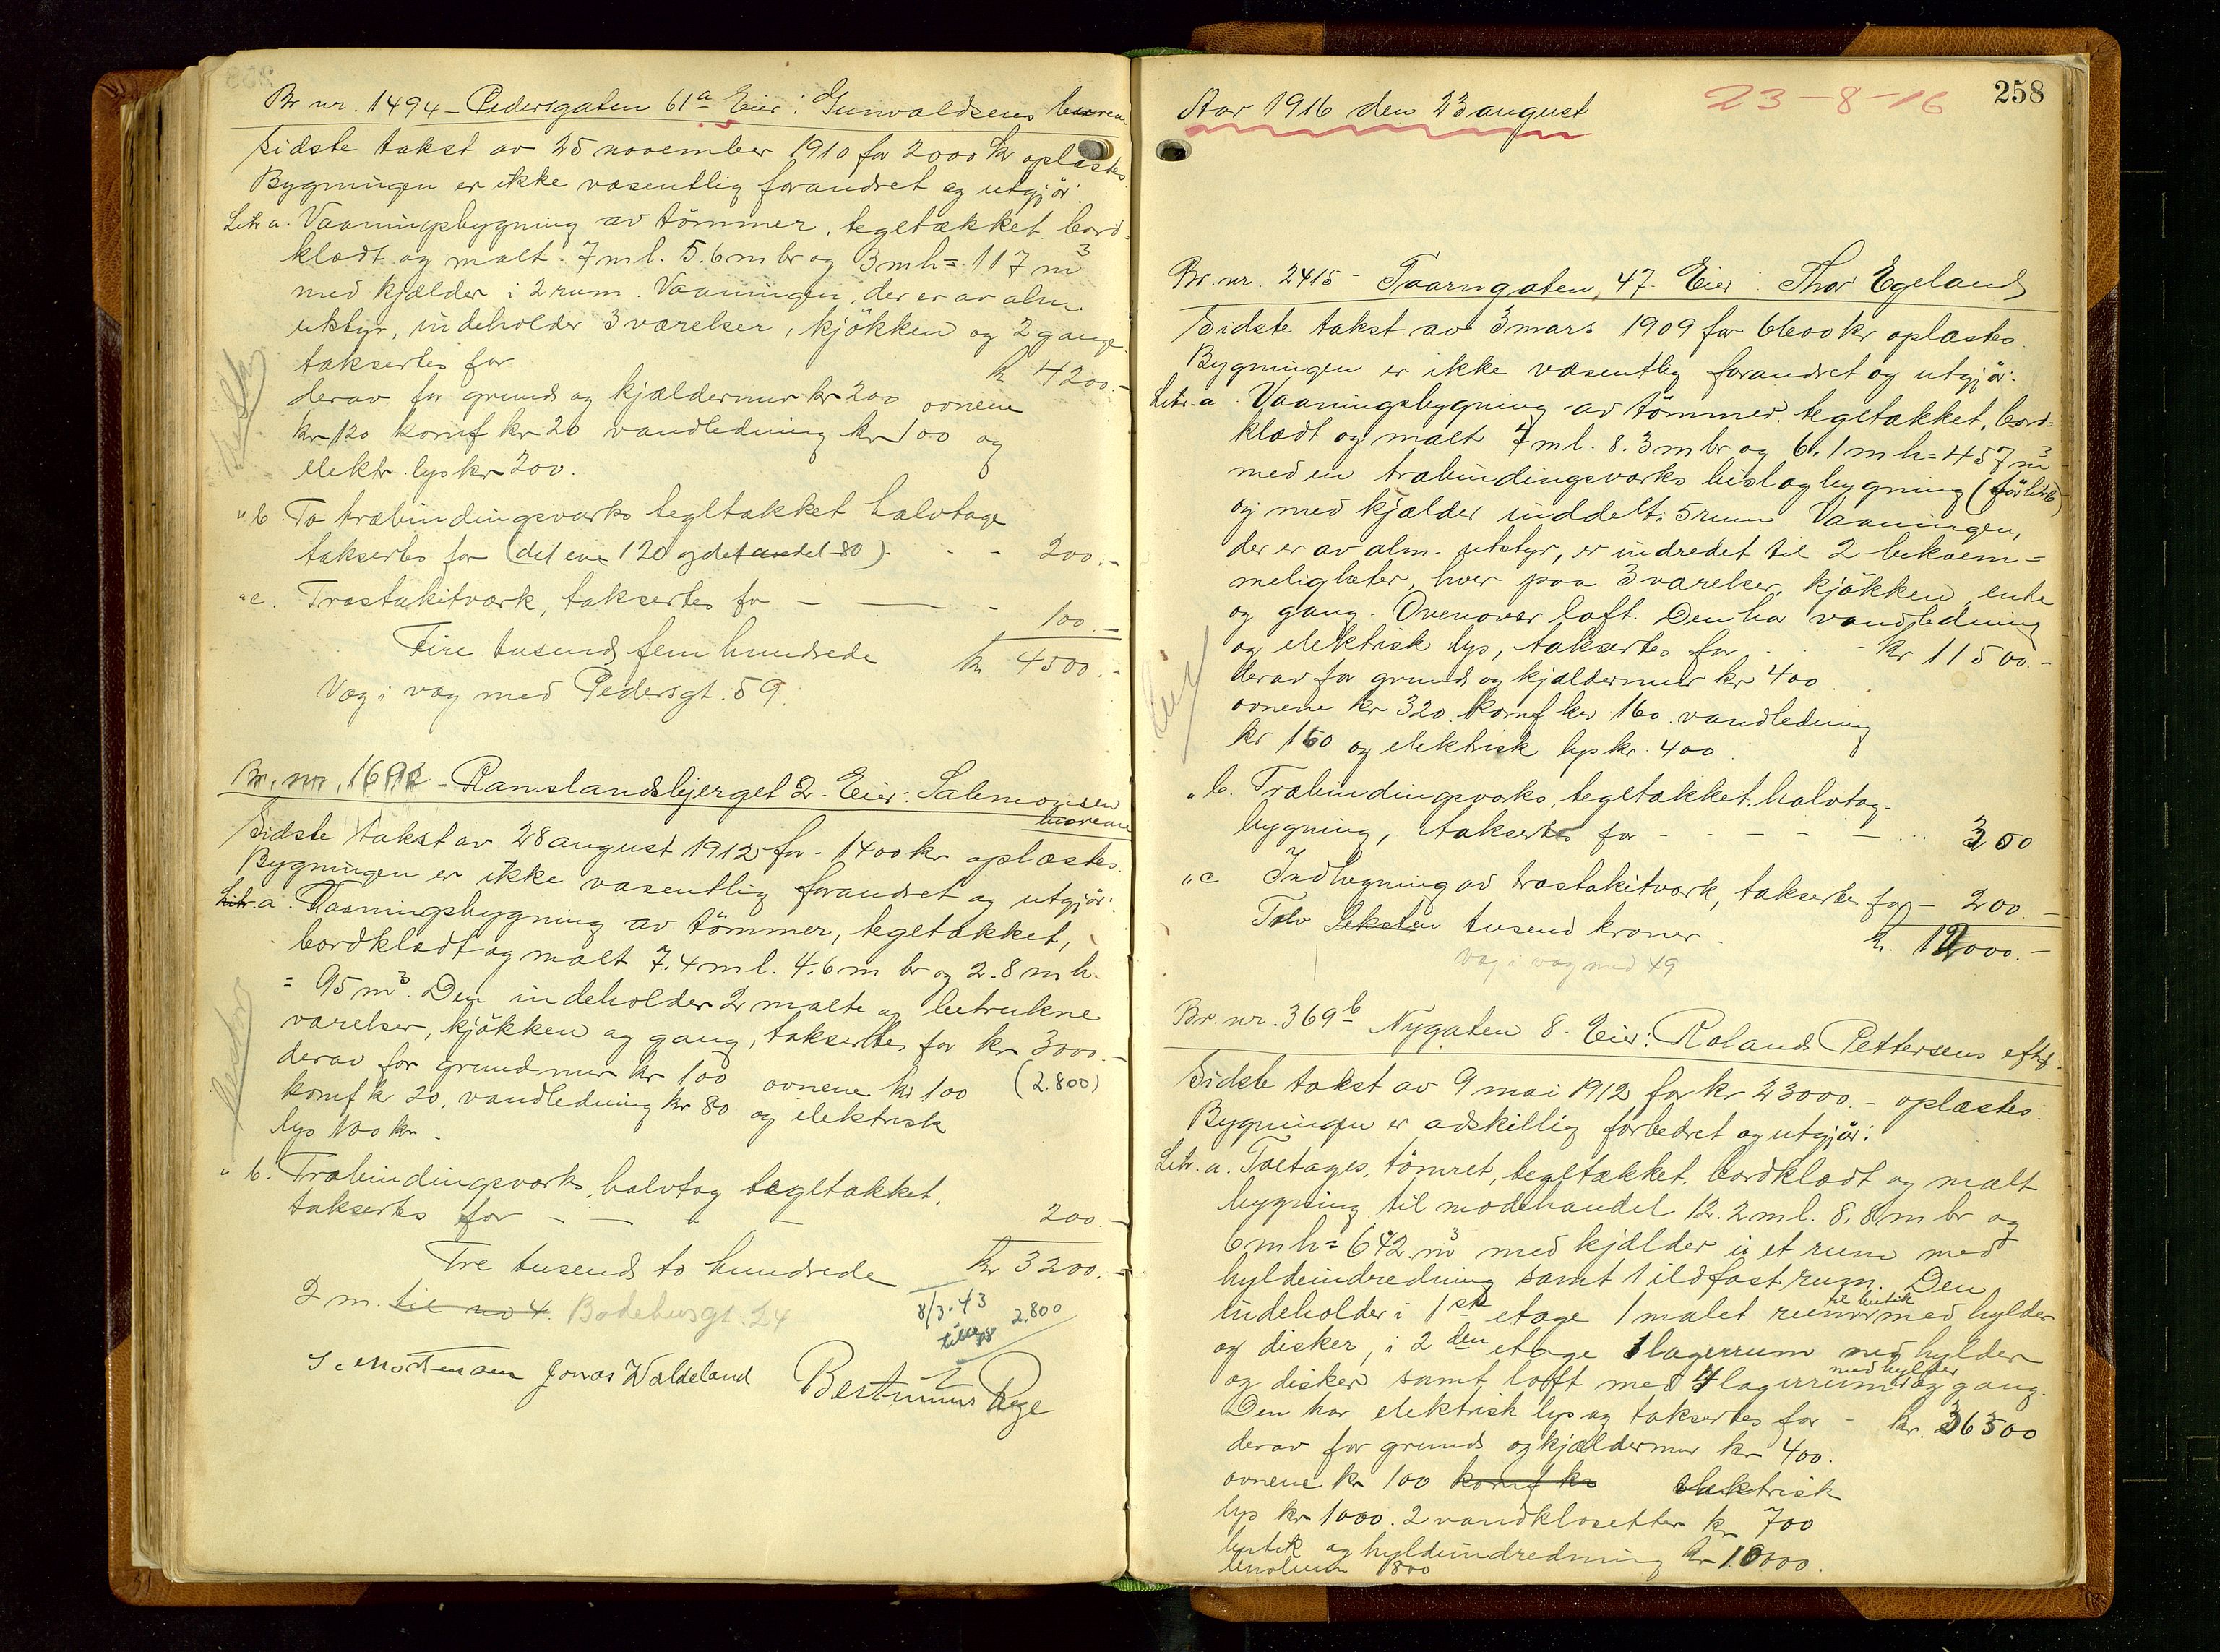 Br nr. 1494 - Pedersgaten 61a Eier: Gunvaldsens
Sidste takst av 25 november 1910 for 2000 kr oplæstes.
Bygningen er ikke væsentlig forandret og utgjör:
Litr a. Vaaningsbygning av tömmer, tegltækket, bord-
klædt og malt. 7 m l. 5.6 m br og 3 m h = 117 m3
med kjælder i 2 rum. Vaaningen, der er av alm.
utstyr, indeholder 3 værelser, kjökken og 2 gange
taksertes for kr 4200.-
derav for grund og kjældermur kr 200 ovnene
kr 120 komf kr 20 vandledning kr 100 og
elektr. lys kr 200.
" b. To træbindingsværks tegltækket halvtage
taksertes for (det ene 120 og det andet 80) - - 200.-
" c. Træstakitværk, taksertes for - - - 100.-
Fire tusend fem hundrede kr 4500.-
Væg i væg med Pedersgt. 59.
Br. nr. 1692 - Ramslandsbjerget 2. Eier: Salomonsen
Sidste takst av 28 august 1912 for - 1400 kr oplæstes.
Bygningen er ikke væsentlig forandret og utgjör:
Litr. a. Vaaningsbygning av tömmer, tegltækket,
bordklædt og malt 7.4 m l. 4.6 m br og 2.8 m h.
= 95 m3. Den indeholder 2 malte og betrukne
værelser, kjökken og gang, taksertes for kr 3000.-
derav for grundmur kr 100 ovnene kr 100 (2.800)
komf kr 20, vandledning kr 80 og elektrisk
lys 100 kr.
" b. Træbindingsværks, halvtag tegltækket,
taksertes for - - - - 200.-
Tre tusend to hundrede kr 3200.-
2 m. til no 4. Bodehusgt. 24
8/3-43 2.800
Jonas Waldeland Bertinius Rege
258
Aar 1916 den 23 august 23-8-16
Br. nr. 2415 - Taarngaten, 47. Eier: Thor Egeland
Sidste takst av 3 mars 1909 for 6600 kr oplæstes.
Bygningen er ikke væsentlig forandret og utgjör:
Litr. a. Vaaningsbygning av tömmer, tegltækket, bord-
klædt og malt 9 m l. 8.3 m br og 6.1 m h = 457 m3
med en træbindingsværks bislagbygning (för litr b)
og med kjælder inddelt i 5 rum. Vaaningen,
der er av alm. utstyr, er indredet til 2 bekvem-
meligheter, hver paa 3 værelser, kjökken, ente
og gang. Ovenover loft. Den har vandledning
og elektrisk lys, taksertes for - - kr 11500.-
derav for grund og kjældermur kr 400
ovnene kr 320. komf kr 160. vandledning
kr 160 og elektrisk lys kr. 400
" b. Træbindingsværks, tegltækket, halvtag-
bygning, taksertes for - - - - 300
" c Indhegning av træstakitværk, taksertes for - 200.-
Tolv Seksten tusend kroner. kr. 12000.-
væg i væg med 49
Br. nr. 369b Nygaten 8. Eier: Roland Pettersens eftf.
Sidste takst av 9 mai 1912 for kr 23000.- oplæstes.
Bygningen er adskillig forbedret og utgjör:
Litr. a. Toetages, tömret, tegltækket, bordklædt og malt
bygning til modehandel 12.2 m l. 8.8 m br og
6 m h = 642 m3 med kjælder i et rum med
hyldeindredning samt 1 ildfast rum. Den
indeholder i 1ste etage 1 malet rum til butik med hylder
og disker, i 2den etage 1 lagerrum med hylder
og disker samt loft med 4 lagerrum med hylder og gang.
Den har elektrisk lys og taksertes for - kr. 36500
derav for grund og kjældermur kr 400.
ovnene kr 100 komf kr elektrisk
lys kr 1000. 2 vandklosetter kr 700
butik og hyldeindredning kr 10000.
linoleum 1800